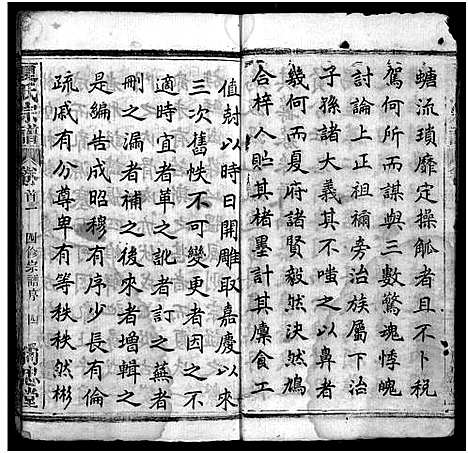 螗流瑣靡定操觚者且不卜稅
駕何所而謀與三數驚魂悸魄
討論上正祖禰旁治族屬下治
子孫諸大義其不嗤之以鼻者
幾何而夏府諸賢毅然決然鳩
合梓人貯其楮墨計其廩食工
值尅以時日開雕取嘉慶以來
三次舊帙不可變更者因之不
適時宜者革之訛者訂之蕪者
刪之漏者補之後來者增輯之
是編告成昭穆有序少長有倫
疏戚有分尊卑有等秩秩然彬
夏氏宗譜 卷首一 四修宗譜序 四